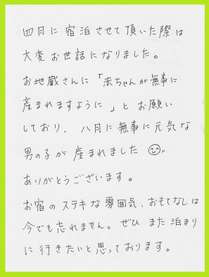 四月に宿泊させて頂いた際は
大変お世話になりました。
お地蔵さんに「赤ちゃんが無事に
産まれますように」とお願い
しており、八月に無事に元気な
男の子が産まれました
ありがとうございます。
お宿のステキな雰囲気、おもてなしは
今でも忘れません。ぜひまた泊まり
に行きたいと思っております。